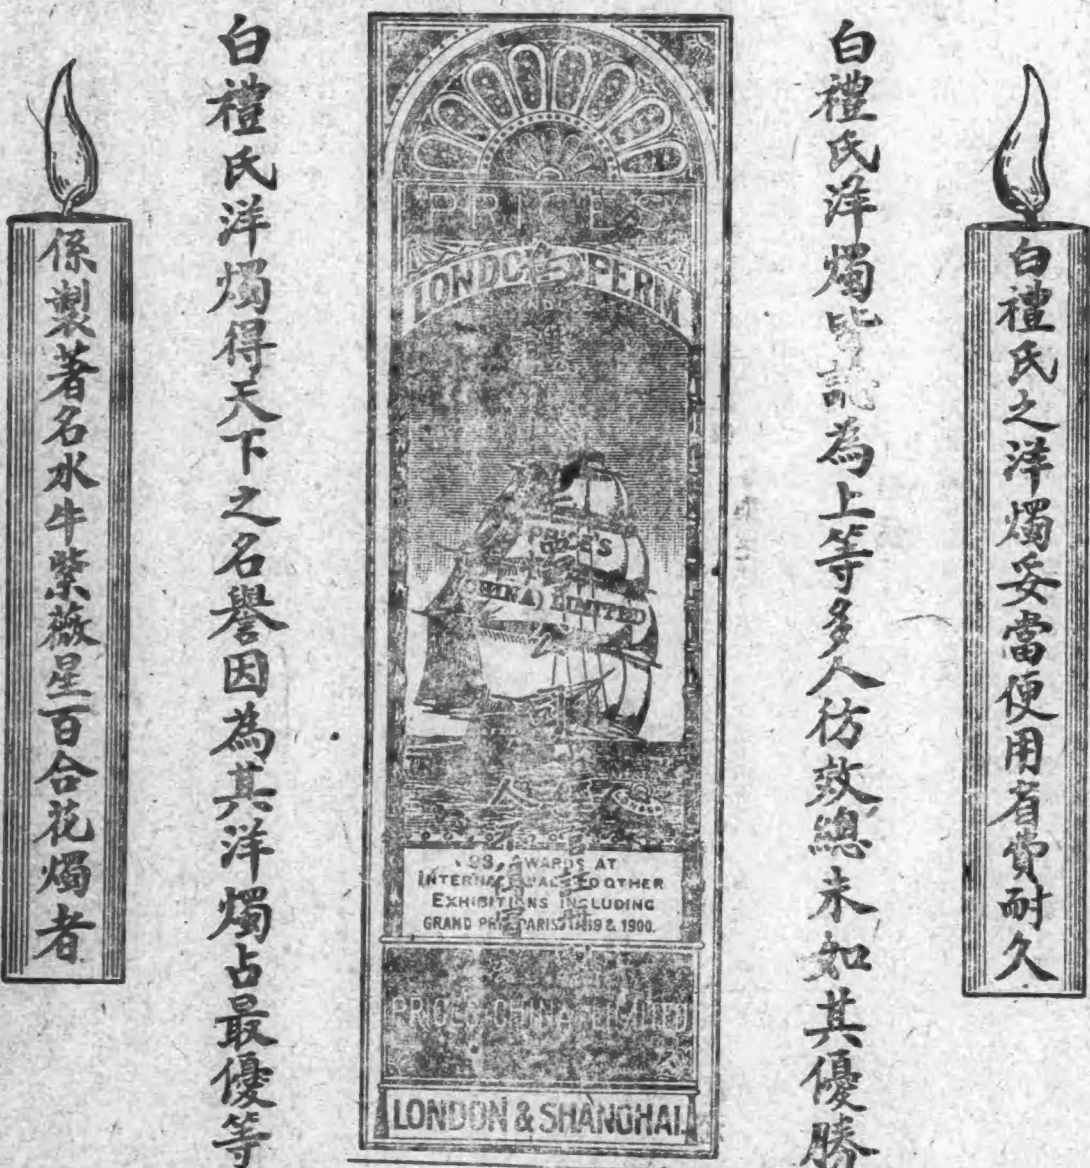 白禮氏之洋燭妥當便用省費耐久
白禮氏洋燭皆認為上等多人彷效總未如其優勝
PRICE'S
LONDON SPERM
PRICE'S
(CHINA) LIMITED
AWARDS AT
INTERNATIONAL AND OTHER
EXHIBITIONS INCLUDING
GRAND PRIX PARIS & 1900.
PRICE'S CHINA LIMITED
LONDON & SHANGHAI
白禮氏洋燭得天下之名譽因為其洋燭占最優等
係製著名水牛紫薇星百合花燭者